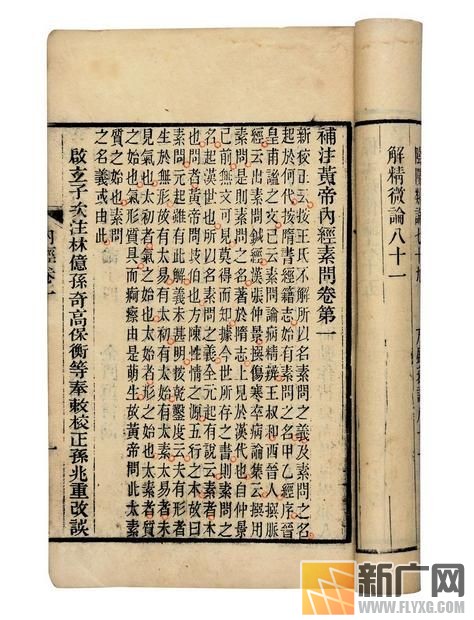 解精微論八十一
補注黃帝內經素問卷第一
新校正云按王氏不解所以名素問之義及素問之名
起於何代按隋書經籍志始有素問之名甲乙經序晉
皇甫謐之文已云素問論病精辨王叔和西晉人撰脈
經云出素問鍼經漢張仲景撰傷寒卒病論集云撰用
素問是則素問之名著於隋志上見於漢代也自仲景
已前無文可見莫得而知據今世所存之書則素問之名
起漢世也所以名素問之義全元起有說云素者本
也問者黃帝問岐伯也方陳性情之源五行之本故曰
素問元起雖有此解義未甚明按乾鑿度云夫有形者
生於無形故有太易有太初有太始有太素太易者未
見氣也太初者氣之始也太始者形之始也太素者質
之始也氣形質具而痾瘵由是萌生故黃帝問此太素
質之始也素問
之名義或由此
啟玄子次注林億孫奇高保衡等奉敕校正孫兆重改誤
內經卷一
新广网
WWW.FLYXG.COM